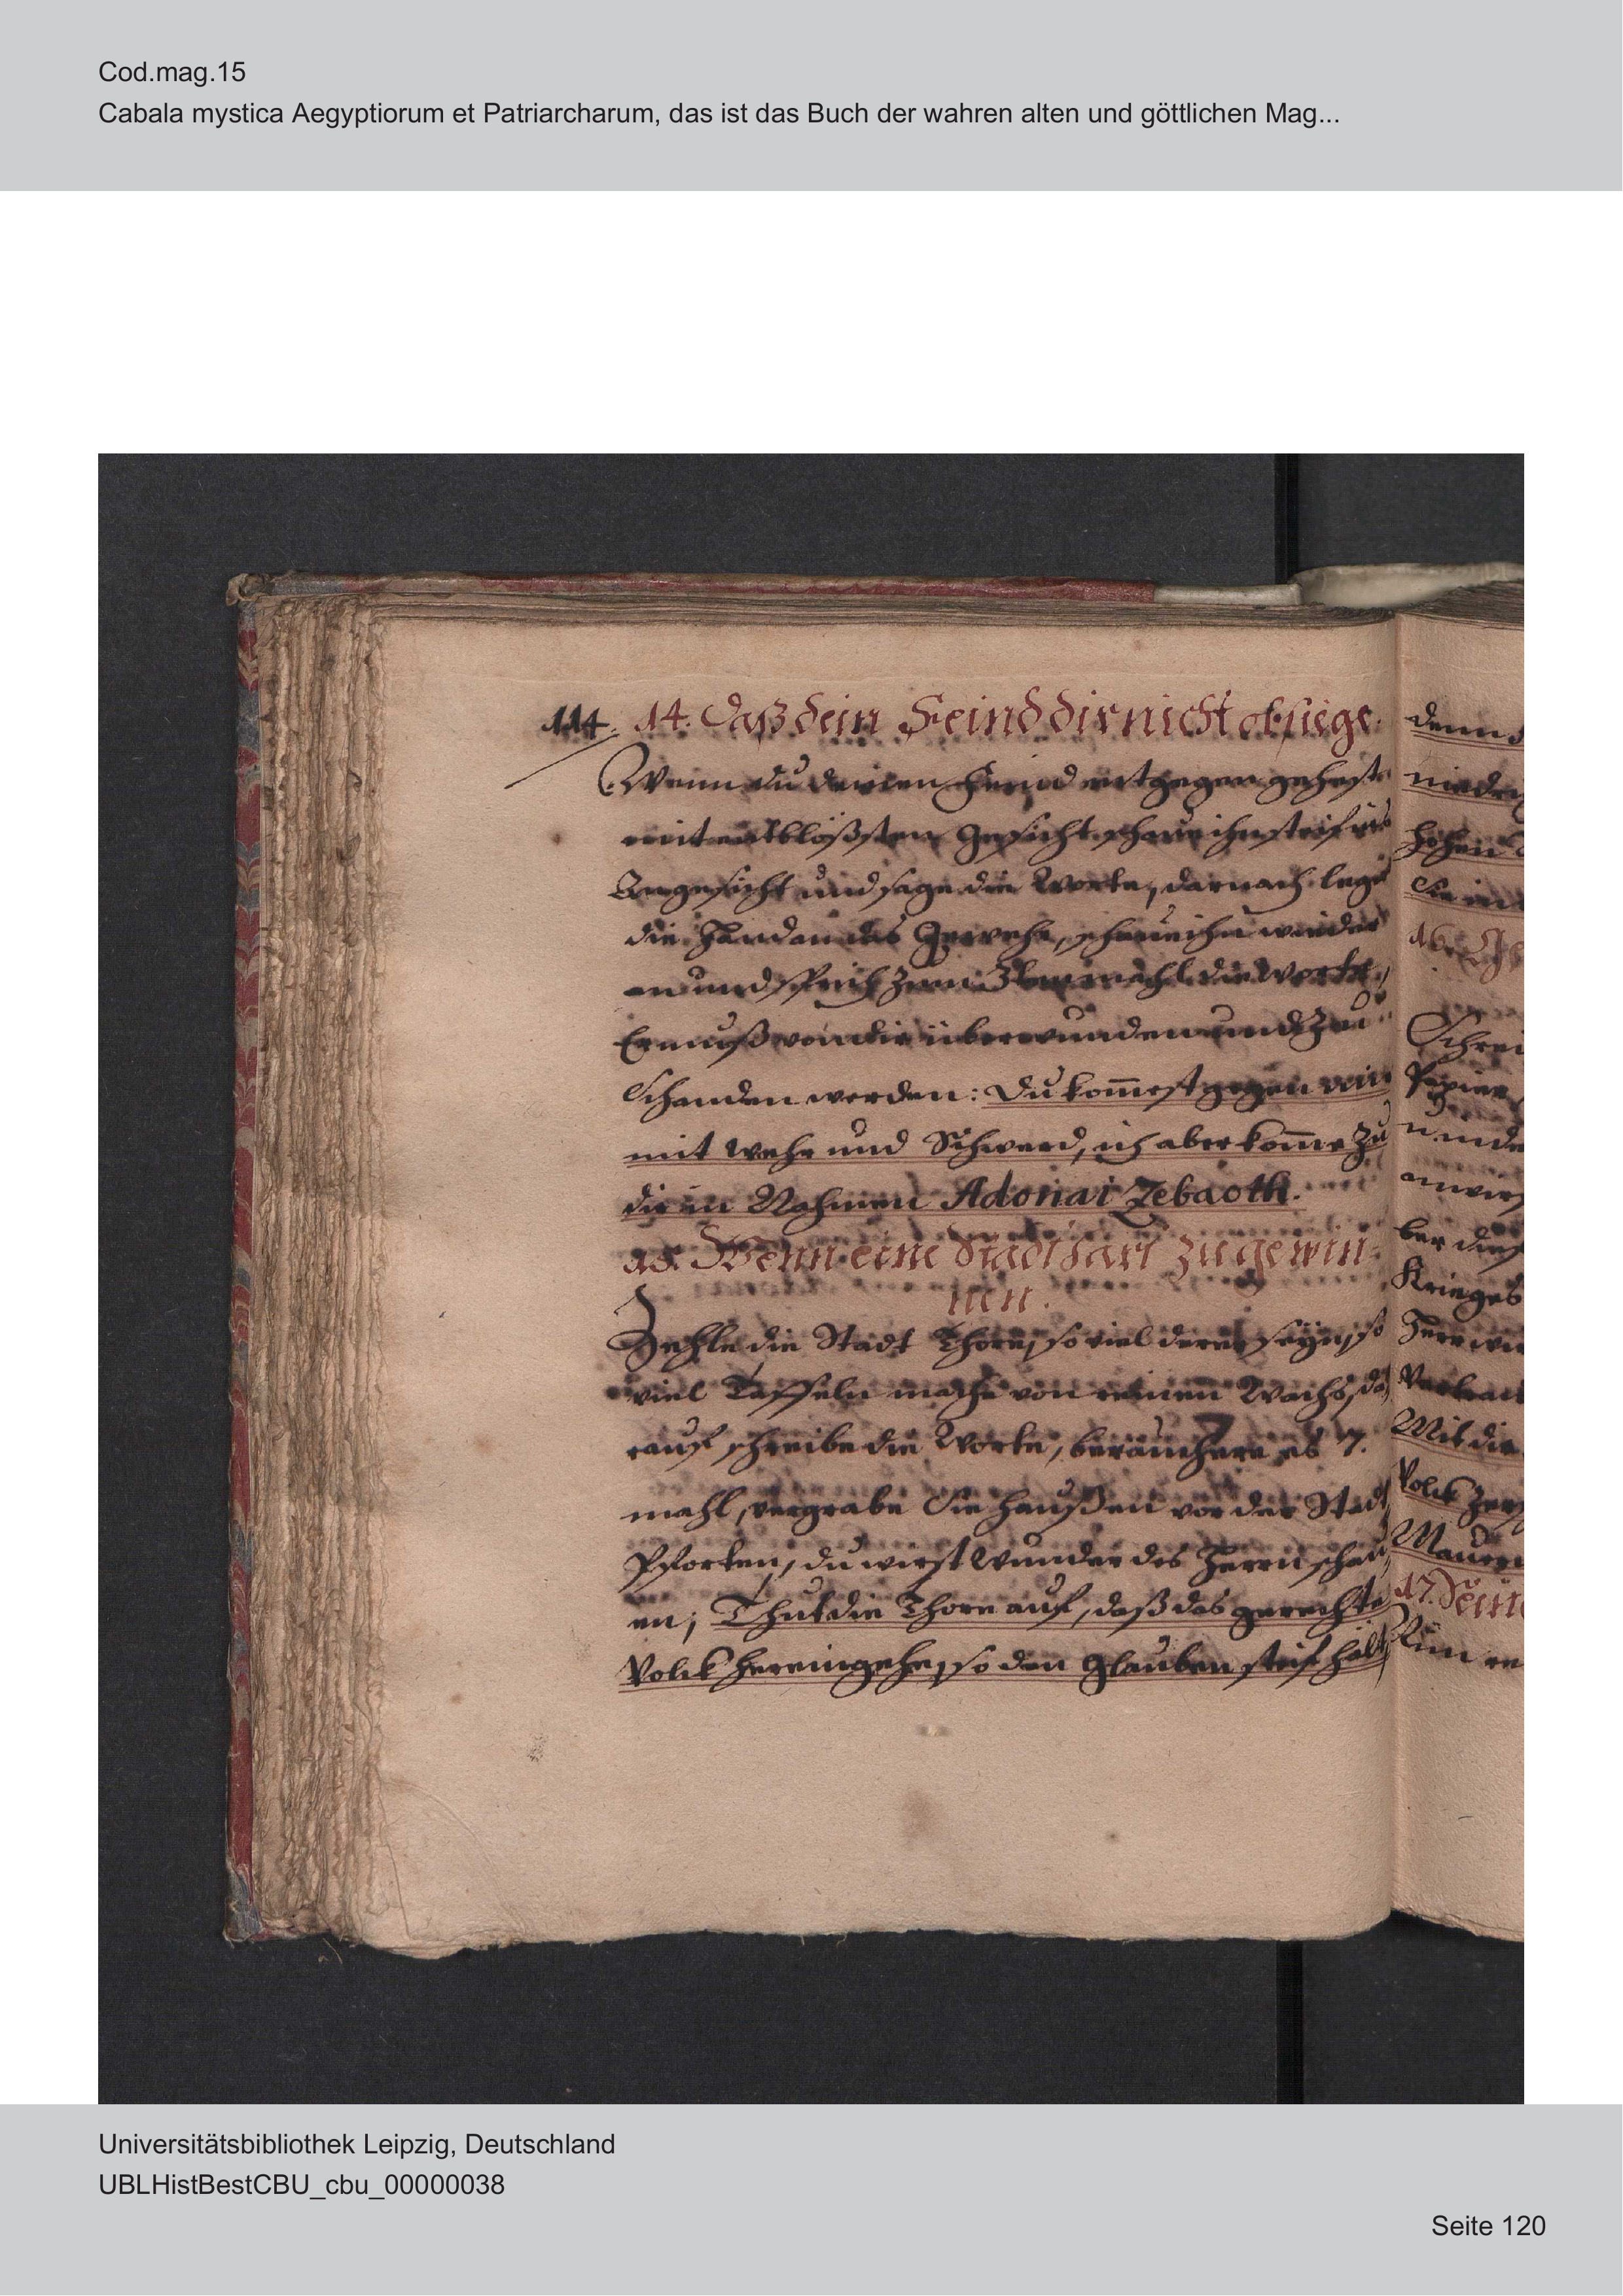 Cod.mag.15
Cabala mystica Aegyptiorum et Patriarcharum, das ist das Buch der wahren alten und göttlichen Mag...
114. 14. Daß dein Feind dir nicht obsiege.
Wenn du deinen Feind entgegen gehest
mit entblößsten Gesicht schaue ihn steif ins
Angesicht und sage die Worte, darnach lege
die Hand an das Gewehr, schaue ihn wieder
an und sprich zum mahl die Worte,
Er muß von dir überwunden und zu
Schanden werden: Du kom̄est gegen mir
mit Wehr und Schwerd, ich aber kom̄e zu
dir im Nahmen Adonai Zebaoth.
15. Wenn eine Stadt hart zu gewin-
nen.
Zehle die Stadt Thore, so viel derer seyn, so
viel Taffeln mache von reinen Wachs, da
rauf schreibe die Worte, beräuchere es 7.
mahl, vergrabe Sie haußen vor der Stadt
Pforten, du wirst Wunder des Herrn schau
en; Thut die Thore auf, daß das gerechte
Volck hereingehe, so den Glauben steif hält
denn
hohen
16.
Schrei
Papier
ber dies
Krieges
Mit die
Volck
Mauern
17.
Universitätsbibliothek Leipzig, Deutschland
UBLHistBestCBU_cbu_00000038
Seite 120